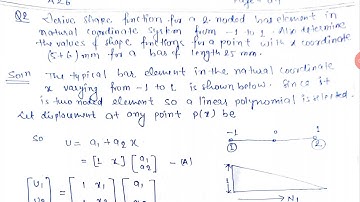 Q2 Derive shape function for a 2 noded bar element in
natural coordinate system from -1 to 1. Also determine
the values of shape functions for a point with x coordinate
(5+6) mm for a bar of length 25 mm.
Soln The typical bar element in the natural coordinate
x varying from -1 to 1 is shown below. Since it
is two noded element so a linear polynomial is selected.
Let displacement at any point P(x) be
-1 0 1
① ②
so u = a₁ + a₂ x
= [1 x] [a₁ a₂] - (A)
[u₁] = [1 x₁] [a₁]
N₁